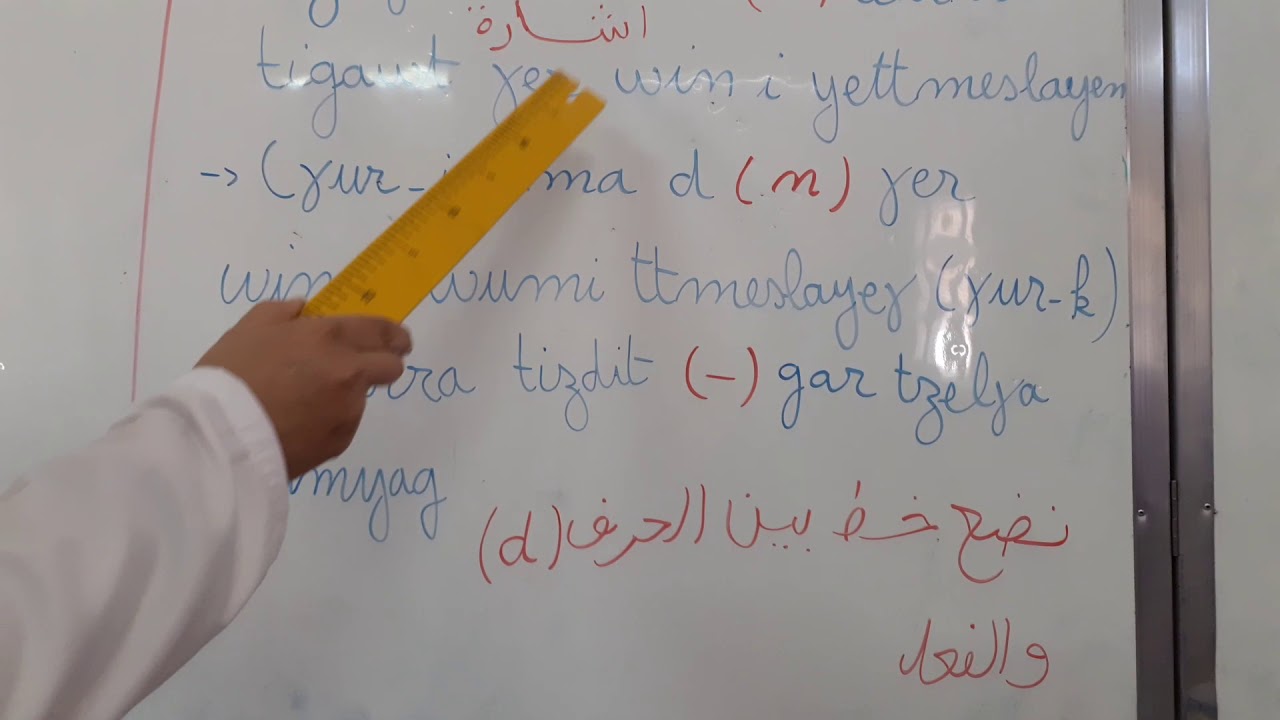 اشارة
tigawt ɣer win i yettmeslayen
→ (ɣur-i) ma d (n) ɣer
win wumi ttmeslayeɣ (ɣur-k).
tizdit (-) gar tzelɣa
umyag
نضع خط بين الحرف (d)
والفعل